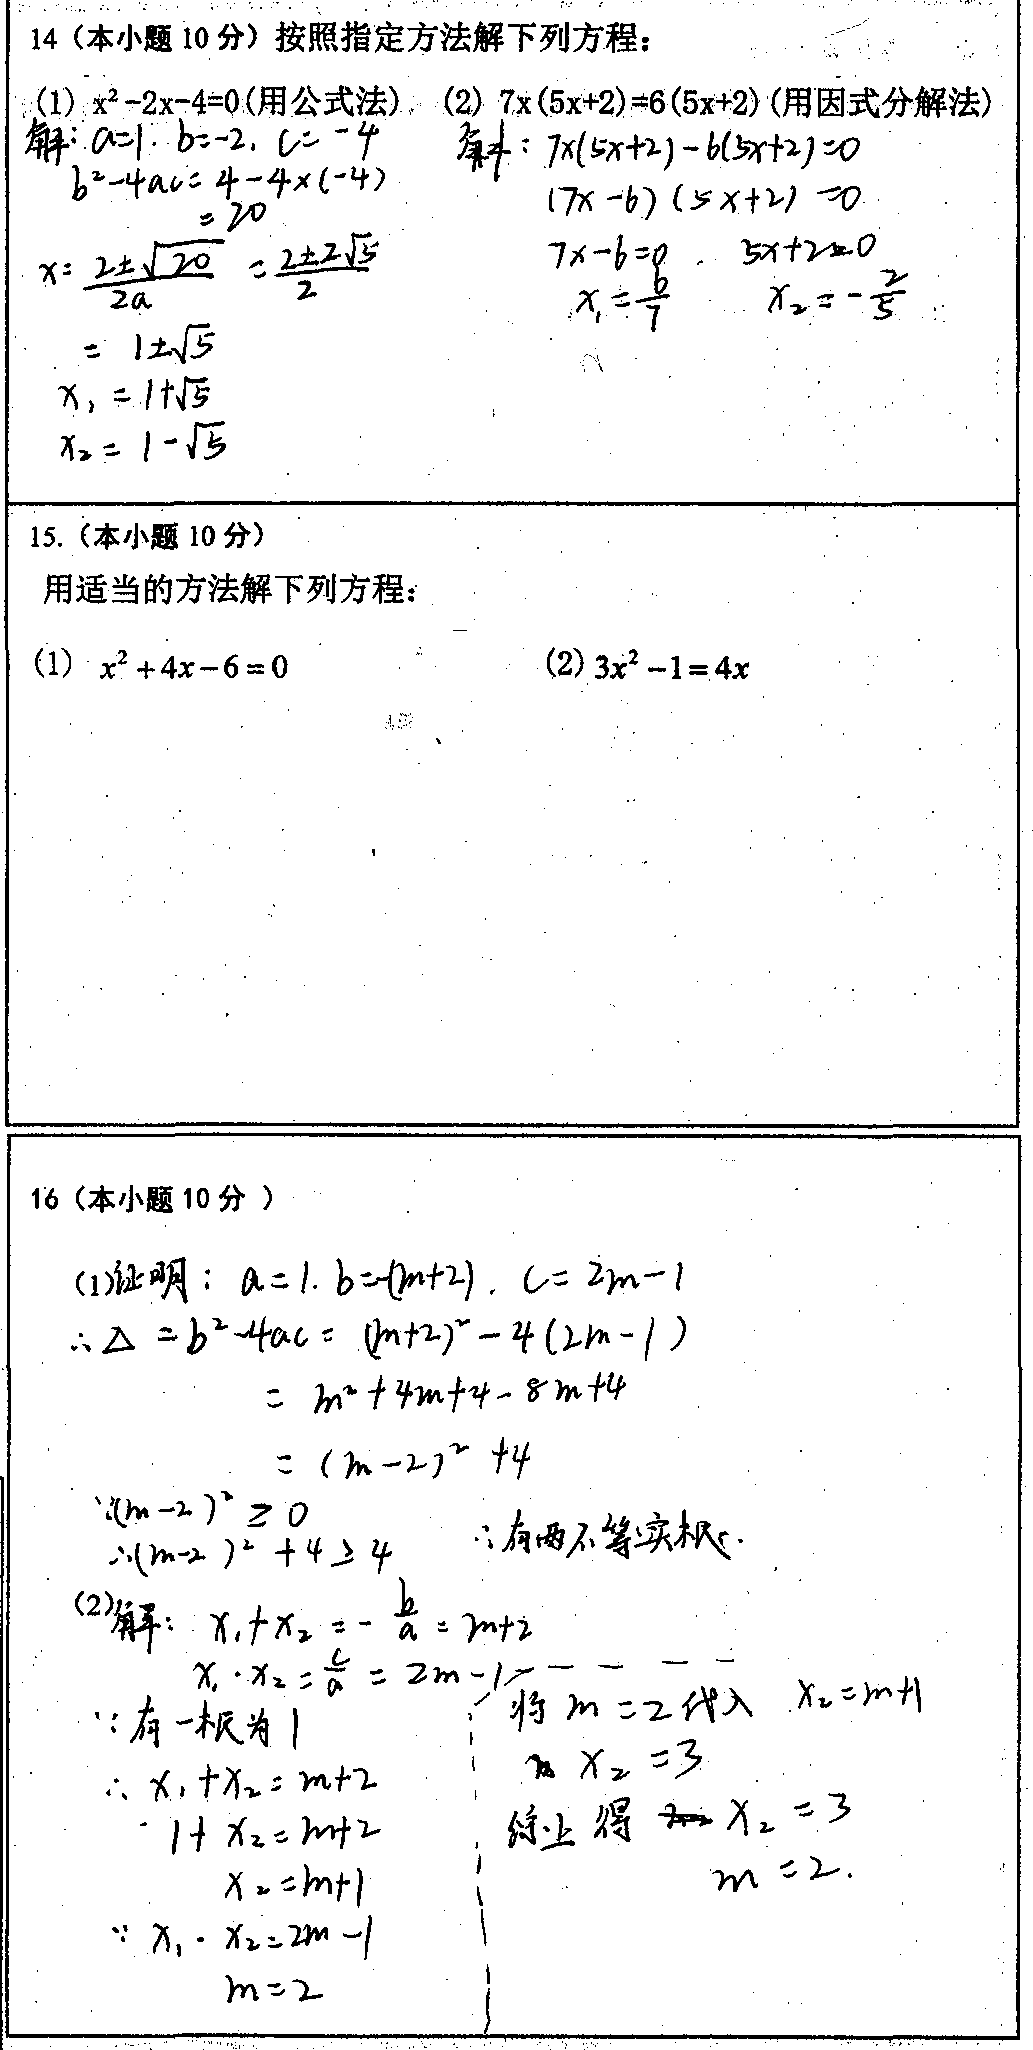 14（本小题 10 分）按照指定方法解下列方程：
(1) x²-2x-4=0(用公式法) (2) 7x(5x+2)=6(5x+2)(用因式分解法)
解：a=1. b=-2. c= -4
b²-4ac= 4-4×(-4)
= 20
x= (2±√20)/(2a) = (2±2√5)/2
= 1±√5
x₁ = 1+√5
x₂ = 1-√5
解：7x(5x+2)-6(5x+2)=0
(7x-6)(5x+2)=0
7x-6=0 . 5x+2=0
x₁=6/7 x₂=-2/5
15.（本小题 10 分）
用适当的方法解下列方程：
(1) x²+4x-6=0 (2) 3x²-1=4x
16（本小题 10 分 ）
(1)证明：a=1. b=-(m+2). c= 2m-1
∴△ =b²-4ac= (m+2)²-4(2m-1)
= m²+4m+4-8m+4
= (m-2)²+4
∵(m-2)² ≥ 0
∴(m-2)²+4≥4 ∴有两不等实根.
(2)解：x₁+x₂=-b/a=m+2
x₁·x₂=c/a=2m-1
∵有一根为1
∴ x₁+x₂=m+2
1+x₂=m+2
x₂=m+1
∵ x₁·x₂=2m-1
m=2
将 m=2代入 x₂=m+1
x₂=3
综上得 x₂=3
m=2.